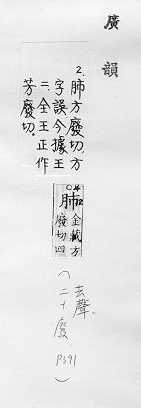 廣韻
2. 肺方廢切.方
字誤今據王
二、全王正作
芳廢切.
肺金藏方
廢切四
(去聲.
二十廢 P391)